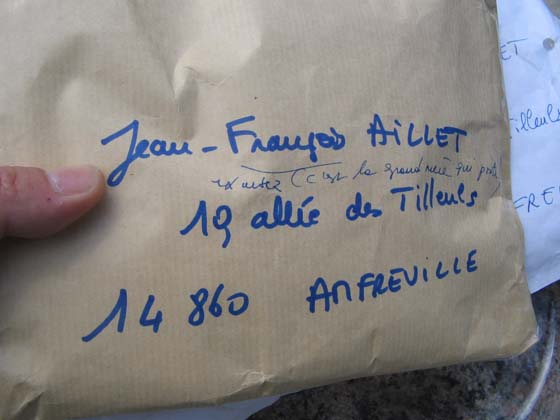 Jean-François AILLET
(c'est la grand mère qui
19 allée des Tilleuls
14 860 AMFREVILLE
ET
illeuls
FRE